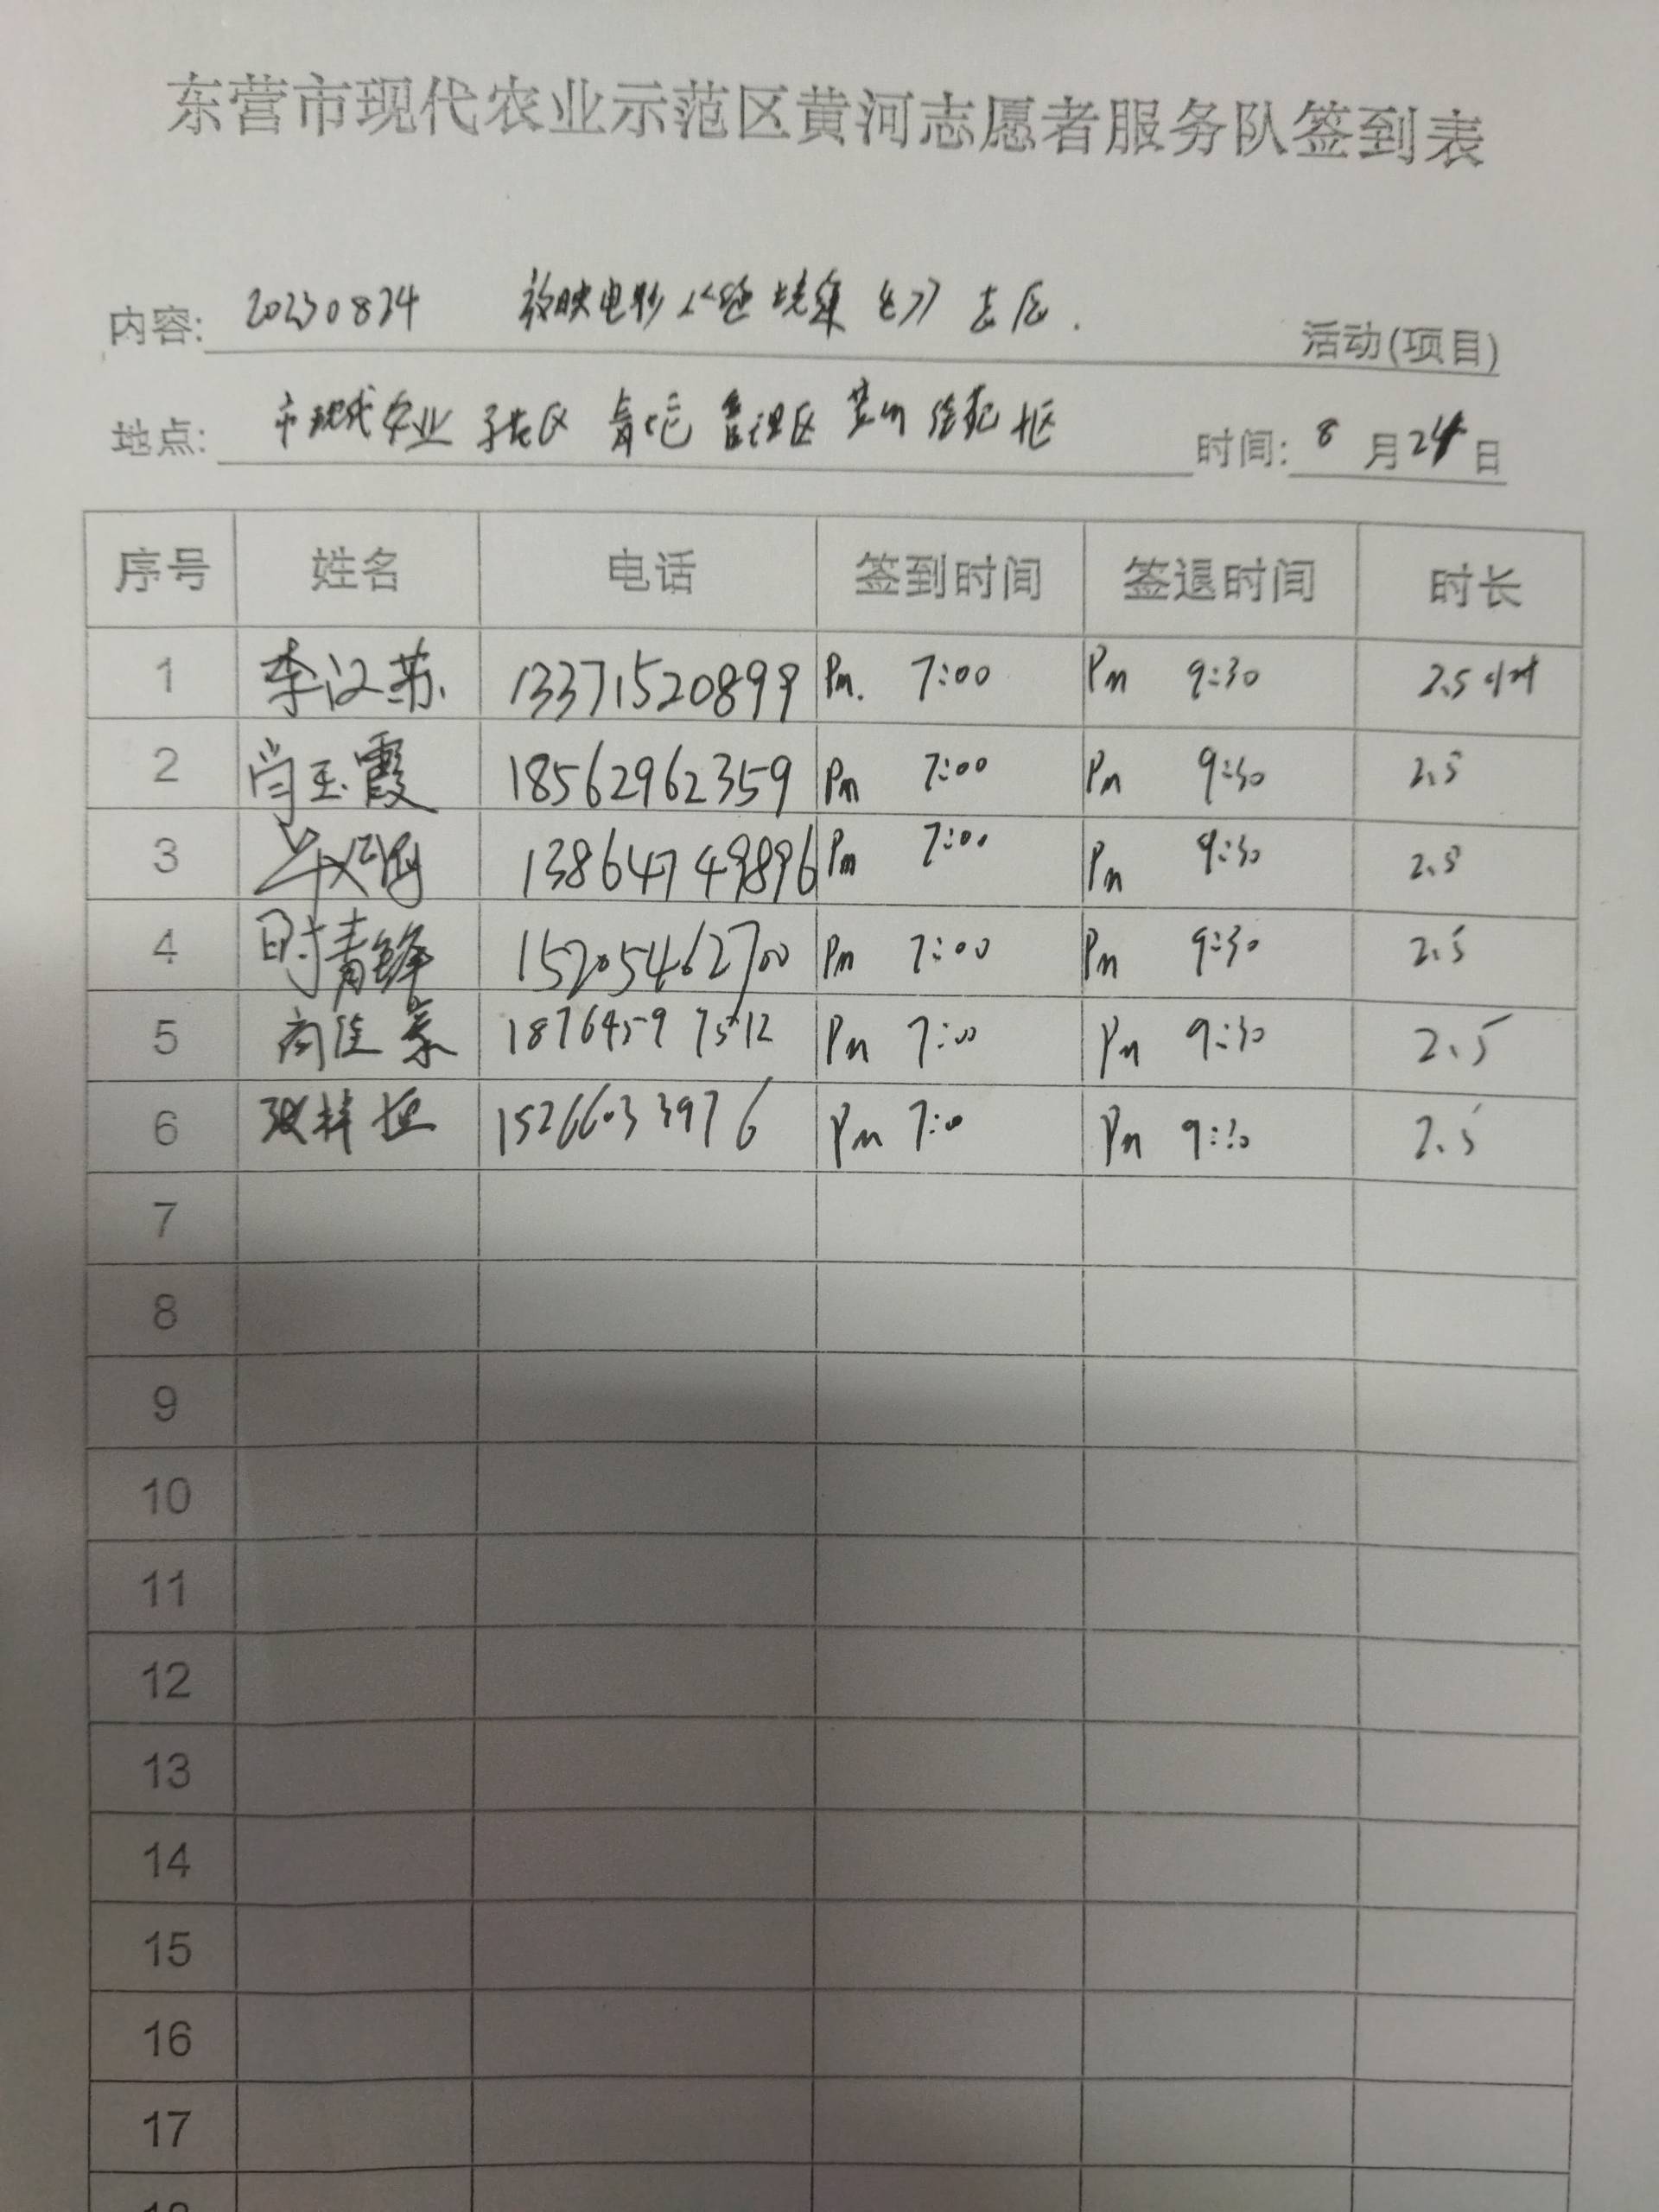 东营市现代农业示范区黄河志愿者服务队签到表
内容: 20230824 放映电影 活动(项目)
地点: 市现代农业示范区 管理区 时间: 8 月 24 日
序号 姓名 电话 签到时间 签退时间 时长
1 李汉苏 13371520899 Pm. 7:00 Pm 9:30 2.5小时
2 闫玉霞 18562962359 Pm 7:00 Pm 9:30 2.5
3 13864749896 Pm 7:00 Pm 9:30 2.5
4 时青锋 15205462700 Pm 7:00 Pm 9:30 2.5
5 18764597512 Pm 7:00 Pm 9:30 2.5
6 15266033976 Pm 7:00 Pm 9:30 2.5
7
8
9
10
11
12
13
14
15
16
17
18